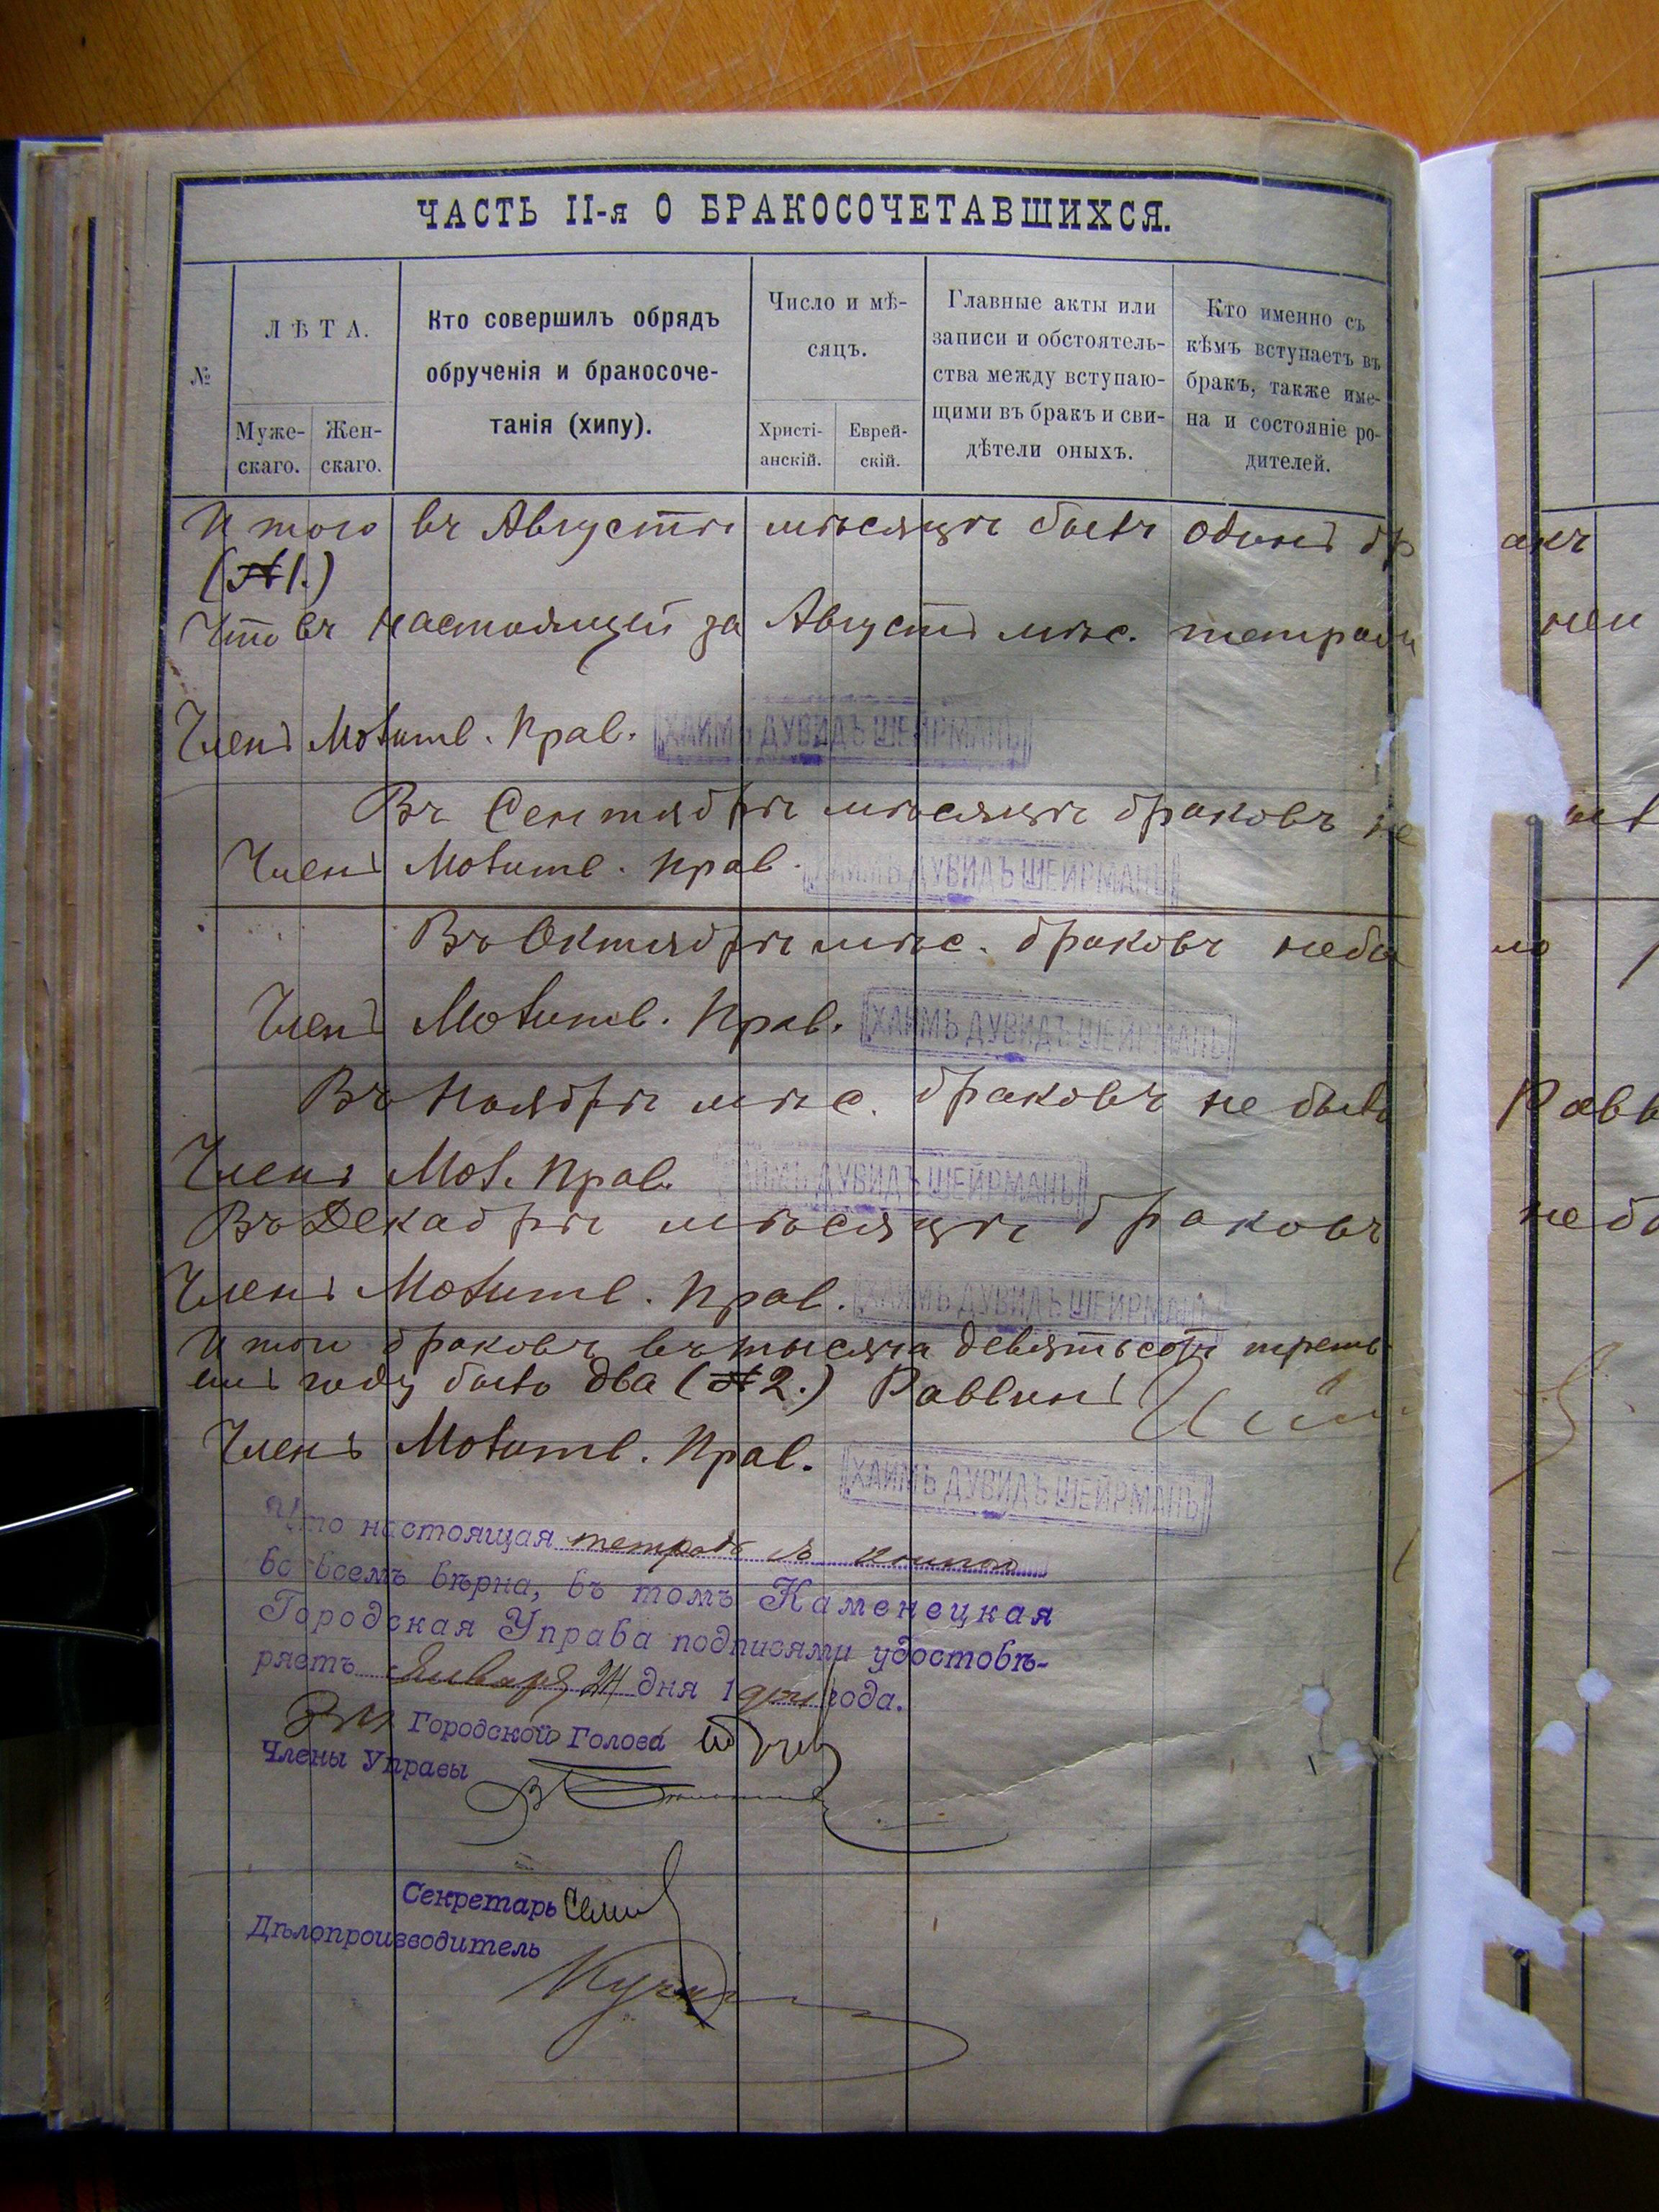 ЧАСТЬ II-я О БРАКОСОЧЕТАВШИХСЯ.
№
ЛѢТА.
Муже-
скаго.
Жен-
скаго.
Кто совершилъ обрядъ
обрученія и бракосоче-
танія (хипу).
Число и мѣ-
сяцъ.
Христі-
анскій.
Еврей-
скій.
Главные акты или
записи и обстоятель-
ства между вступаю-
щими въ бракъ и сви-
дѣтели оныхъ.
Кто именно съ
кѣмъ вступаетъ въ
бракъ, также име-
на и состояніе ро-
дителей.
Итого въ Августѣ мѣсяцѣ былъ одинъ бр акъ
(№1.)
Что въ настоящей за Августъ мѣс. тетради
Членъ Молитв. Прав. ХАИМЪ ДУВИДЪ ШЕЙРМАНЪ
Въ Сентябрѣ мѣсяцѣ браковъ не
Членъ Молитв. Прав. ХАИМЪ ДУВИДЪ ШЕЙРМАНЪ
Въ Октябрѣ мѣс. браковъ небы ло
Членъ Молитв. Прав. ХАИМЪ ДУВИДЪ ШЕЙРМАНЪ
Въ Ноябрѣ мѣс. браковъ не было Равв
Членъ Мол. Прав. ХАИМЪ ДУВИДЪ ШЕЙРМАНЪ
Въ Декабрѣ мѣсяцѣ браковъ не бы
Членъ Молитв. Прав. ХАИМЪ ДУВИДЪ ШЕЙРМАНЪ
Итого браковъ въ тысяча девятьсотъ треть
емъ году было два (№2.) Раввинъ
Членъ Молитв. Прав. ХАИМЪ ДУВИДЪ ШЕЙРМАНЪ
Что настоящая тетрадь съ книгою
во всемъ вѣрна, въ томъ Каменецкая
Городская Управа подписями удостовѣ-
ряетъ Января 24 дня 1904 года.
Городской Голова
Члены Управы
Секретарь
Дѣлопроизводитель